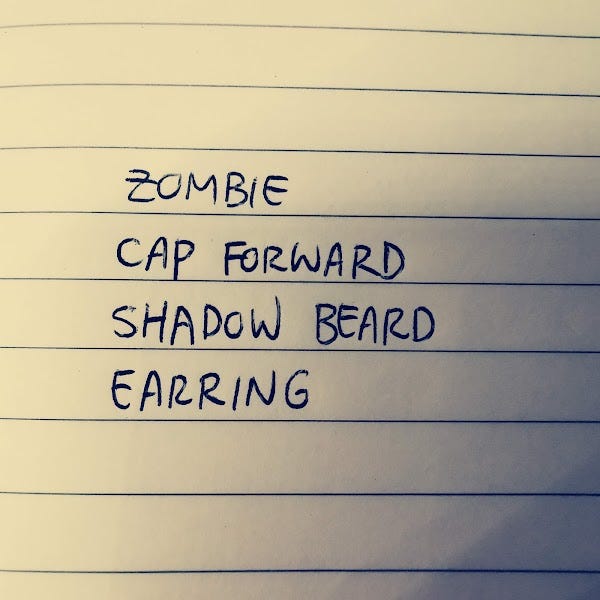 ZOMBIE
CAP FORWARD
SHADOW BEARD
EARRING